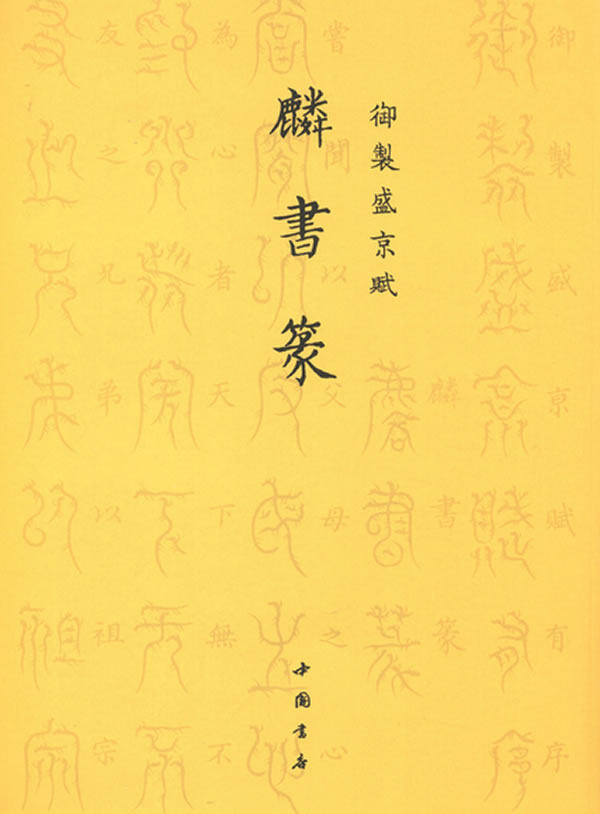 御製盛京賦
麟書篆
中国書店
御製盛京賦有序
麟書篆
嘗聞以父母之心
為心者天下無不
友之兄弟以祖宗